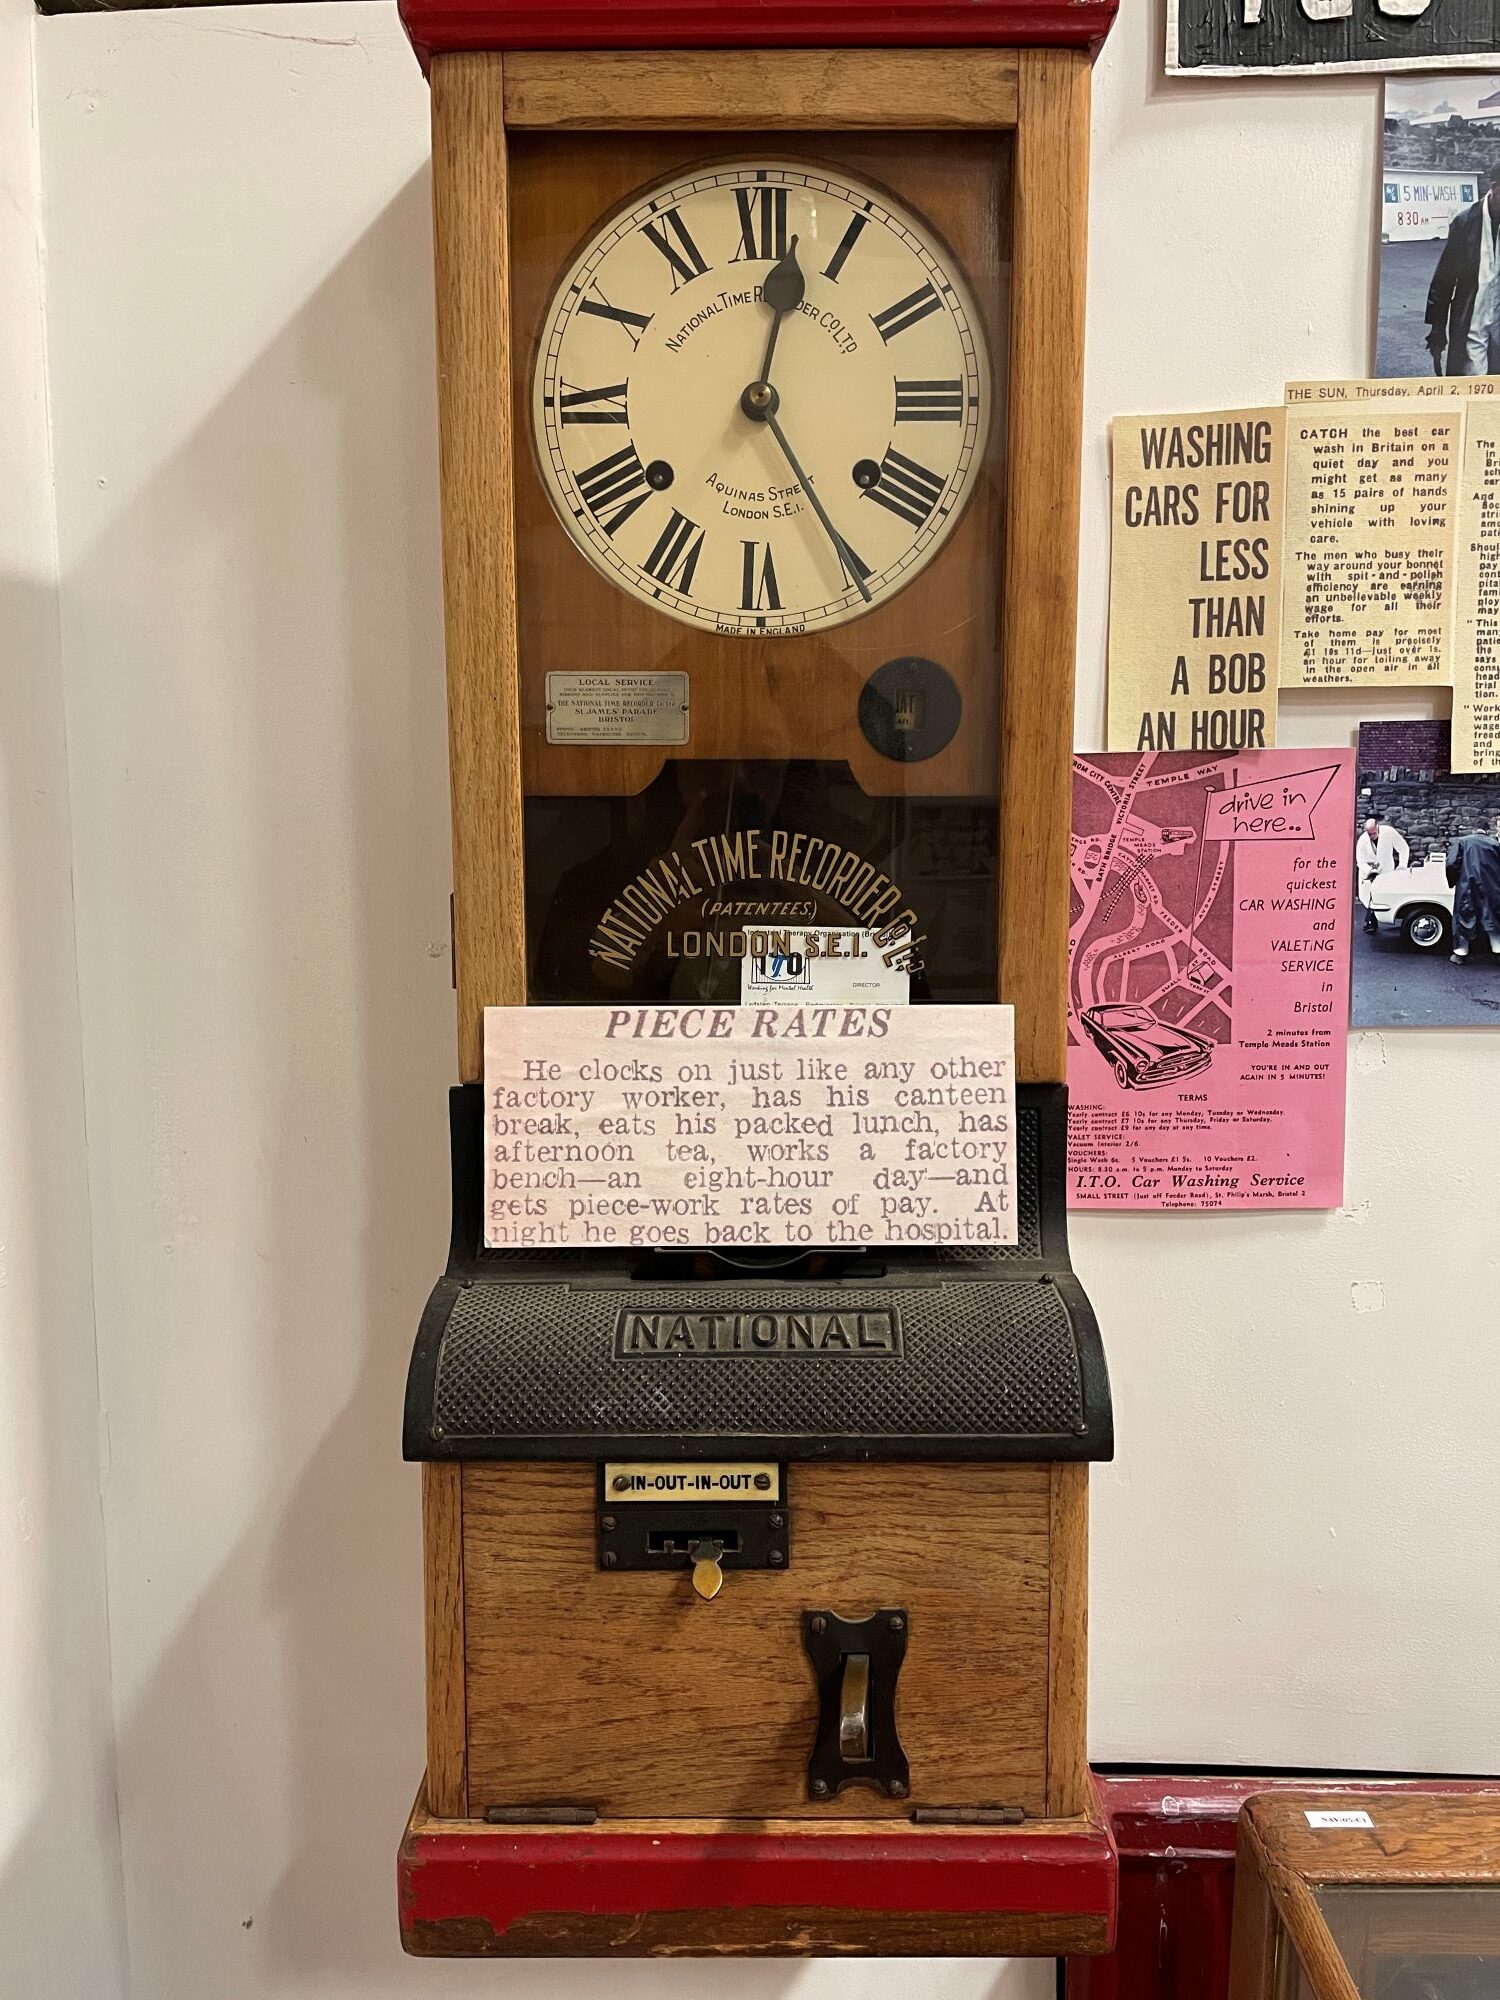 XII
I
II
III
IIII
V
VI
VII
VIII
IX
X
XI
NATIONAL TIME RE DER Co. LTD.,
AQUINAS STREET
LONDON S.E.1.
MADE IN ENGLAND
LOCAL SERVICE
THE NATIONAL TIME RECORDER Co Ltd
St. JAMES' PARADE
BRISTOL
NATIONAL TIME RECORDER Co. Ltd.
(PATENTEES)
LONDON, S.E.1.
Industrial Therapy Organisation
ITO
Working for Mental Health
DIRECTOR
PIECE RATES
He clocks on just like any other
factory worker, has his canteen
break, eats his packed lunch, has
afternoon tea, works a factory
bench—an eight-hour day—and
gets piece-work rates of pay. At
night he goes back to the hospital.
NATIONAL
IN-OUT-IN-OUT
5 MIN-WASH
8·30 AM —
THE SUN, Thursday, April 2, 1970
WASHING
CARS FOR
LESS
THAN
A BOB
AN HOUR
CATCH the best car
wash in Britain on a
quiet day and you
might get as many
as 15 pairs of hands
shining up your
vehicle with loving
care.
The men who busy their
way around your bonnet
with spit-and-polish
efficiency are earning
an unbelievable weekly
wage for all their
efforts.
Take home pay for most
of them is precisely
£1 19s 11d—just over 1s.
an hour for toiling away
in the open air in all
weathers.
FROM CITY CENTRE
VICTORIA STREET
TEMPLE WAY
BATH BRIDGE
TEMPLE
MEADS
STATION
CATTLE MARKET RD.
FEEDER
ROAD
AVON STREET
ALBERT ROAD
SMALL ST.
drive in
here..
for the
quickest
CAR WASHING
and
VALETING
SERVICE
in
Bristol
2 minutes from
Temple Meads Station
YOU'RE IN AND OUT
AGAIN IN 5 MINUTES!
TERMS
WASHING:
Yearly contract £6 10s for any Monday, Tuesday or Wednesday.
Yearly contract £7 10s for any Thursday, Friday or Saturday.
Yearly contract £9 for any day at any time.
VALET SERVICE:
Vacuum Interior 2/6
VOUCHERS:
Single Wash 6s. 5 Vouchers £1 5s. 10 Vouchers £2.
HOURS: 8.30 a.m. to 5 p.m. Monday to Saturday
I.T.O. Car Washing Service
SMALL STREET (Just off Feeder Road), St. Philip's Marsh, Bristol 2
Telephone: 75074